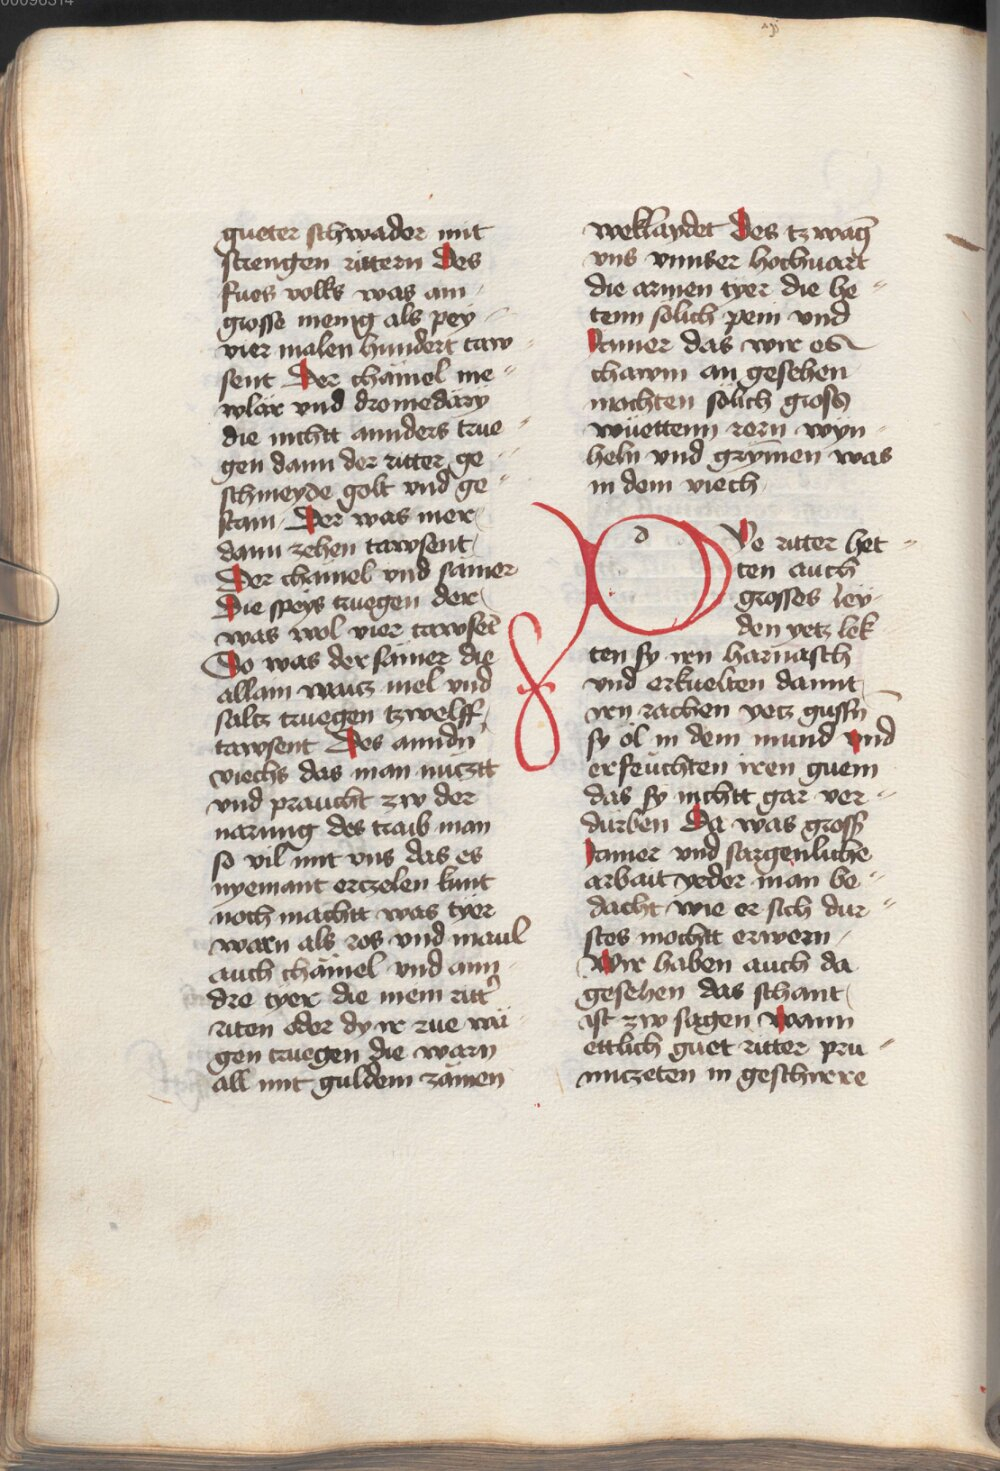 00096314
gueter schwader mit
strengen rittern Des
fues volks was ain
grosse menig als pey
vier malen hundert taw
sent Der chämel me
wlär vnd dromedäry
die nichtt annders true
gen dann der ritter ge
schmeyde golt vnd ge
stain Der was mer
dann zehen tawsent
Der chämel vnd samer
Die speys truegen der
was wol vier tawsēt
Do was der samer die
allain waitz mel vnd
saltz truegen tzwelff
tawsent Des anndn̄
viechs das man nuͤcztt
vnd praucht zw der
narung des traib man
so vil mit vns das es
nyemant erczelen kunt
noch machtt was tyer
warn als ros vnd maul
auch chämel vnd ann
dre tyer die mein ritt̄
riten oder dy ir rue wä
gen truegen die warn
all mit guldein zämen
weklaydet Des tzwāg
vns vnnser hochuart
die armen tyer die he
tenn sölich pein vnd
Jamer das wir es
chawm an gesehen
mochten sölich gross
wüettenn rern wyn
heln vnd grymen was
in dem viech
d
Dye ritter het
ten auch
grosses ley
den yetz lek
ten sy irn harnasch
vnd erkuelten damit
irn rachen yetz gussn̄
sy öl in dem mund vnd
erfeuchten iren guem
das sy nichtt gar ver
durben Da was gross
Jamer vnd sargenliche
arbait yeder man be
dacht wie er sich dur
stes mochtt erwern
Wir haben auch da
gesehen das schant
ist zw sagen Wann
ettlich guet ritter pru
nnczeten in geschirre